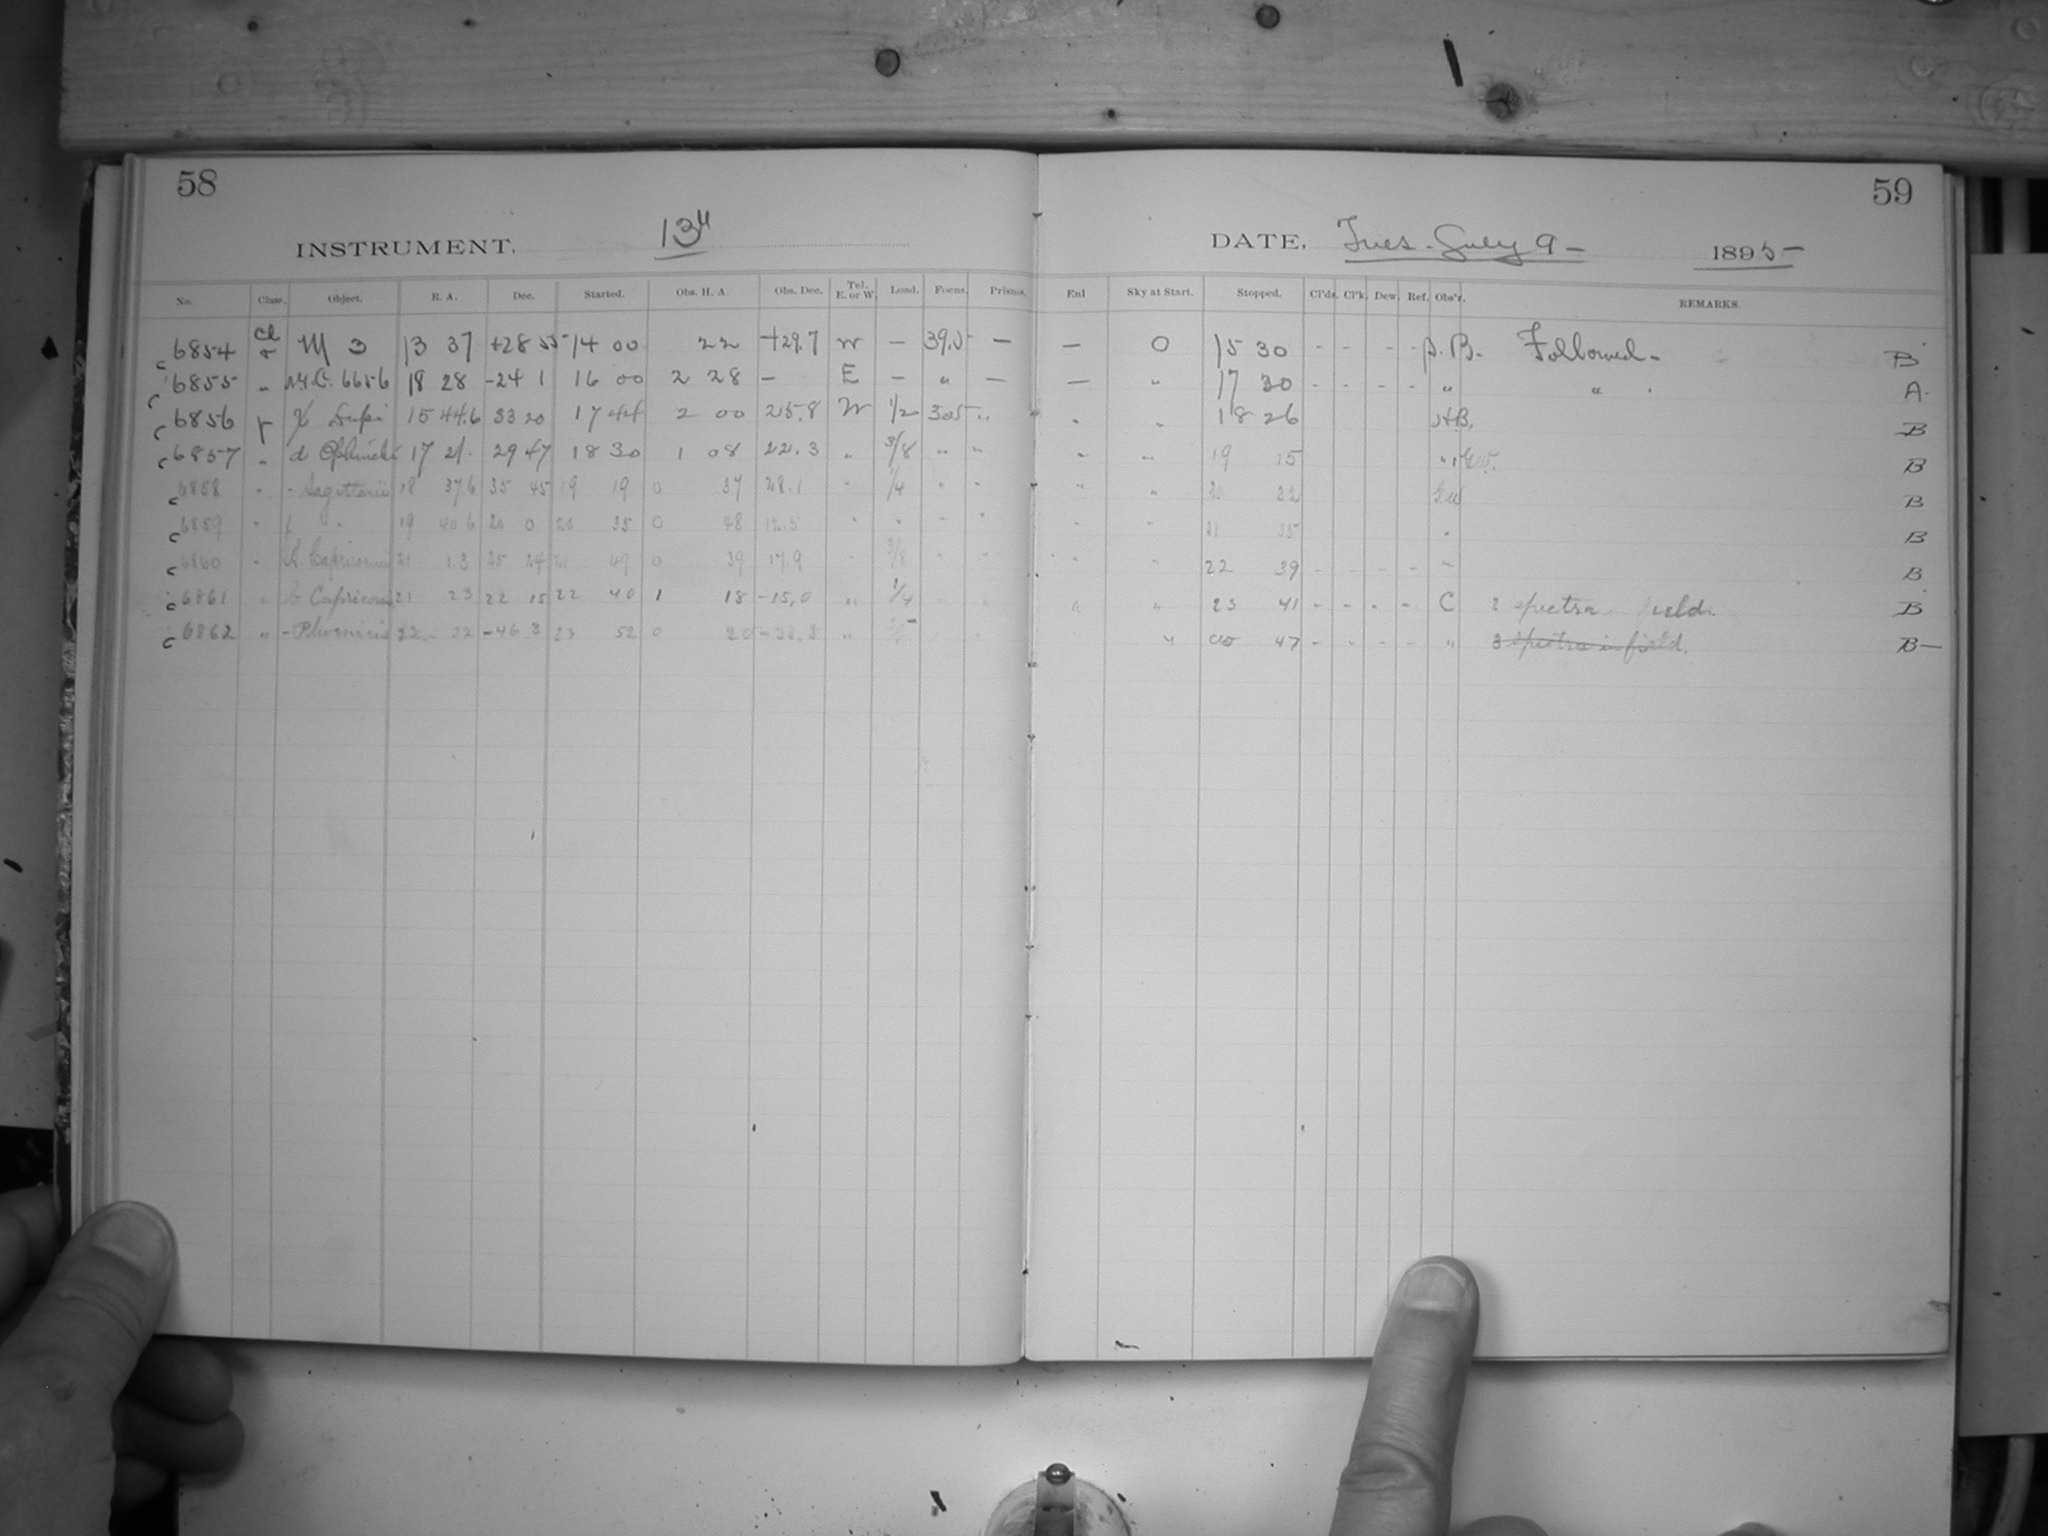 58
59
INSTRUMENT. 13"
DATE. Tues. July 9 — 1895 —
No. Class. Object. R. A. Dec. Started. Obs. H. A Obs. Dec. Tel. E. or W. Lend. Focus. Prisms. Enl Sky at Start. Stopped. Cl'ds. Cl'k. Dew. Ref. Obs'r. REMARKS.
c 6854 Cl + M 3 13 37 +28 55 14 00 22 +29.7 W — 39.5 — — 0 15 30 - - - - S. B. Followed — B
c 6855 " N.G.C. 6656 18 28 -24 1 16 00 2 28 — E — " — — " 17 30 - - - - " " A
c 6856 χ Lupi 15 44.6 33 20 17 44 2 00 25.8 W 1/2 " " 18 26 B
c 6857 " d Ophiuchi 17 21 29 47 18 30 1 08 22.3 " 3/8 " " " " 19 15 " B
c 6858 " - Sagittarii 18 37.6 35 45 19 19 0 37 28.1 " 1/4 " " " " 20 22 B
c 6859 " f " 19 40.6 20 0 20 35 0 48 12.5 " " " " " " 21 35 " B
c 6860 " A. Capricorni 21 1.3 25 24 21 49 0 39 17.9 " 3/8 " " " " 22 39 - - - - " B
c 6861 " b Capricorni 21 23 22 15 22 40 1 18 -15.0 " 1/4 " " " " 23 41 - - - - C 2 spectra field. B
c 6862 " - Phoenicis 23 52 0 20 -38.8 " " 00 47 - - - - " 3 spectra in field. B—